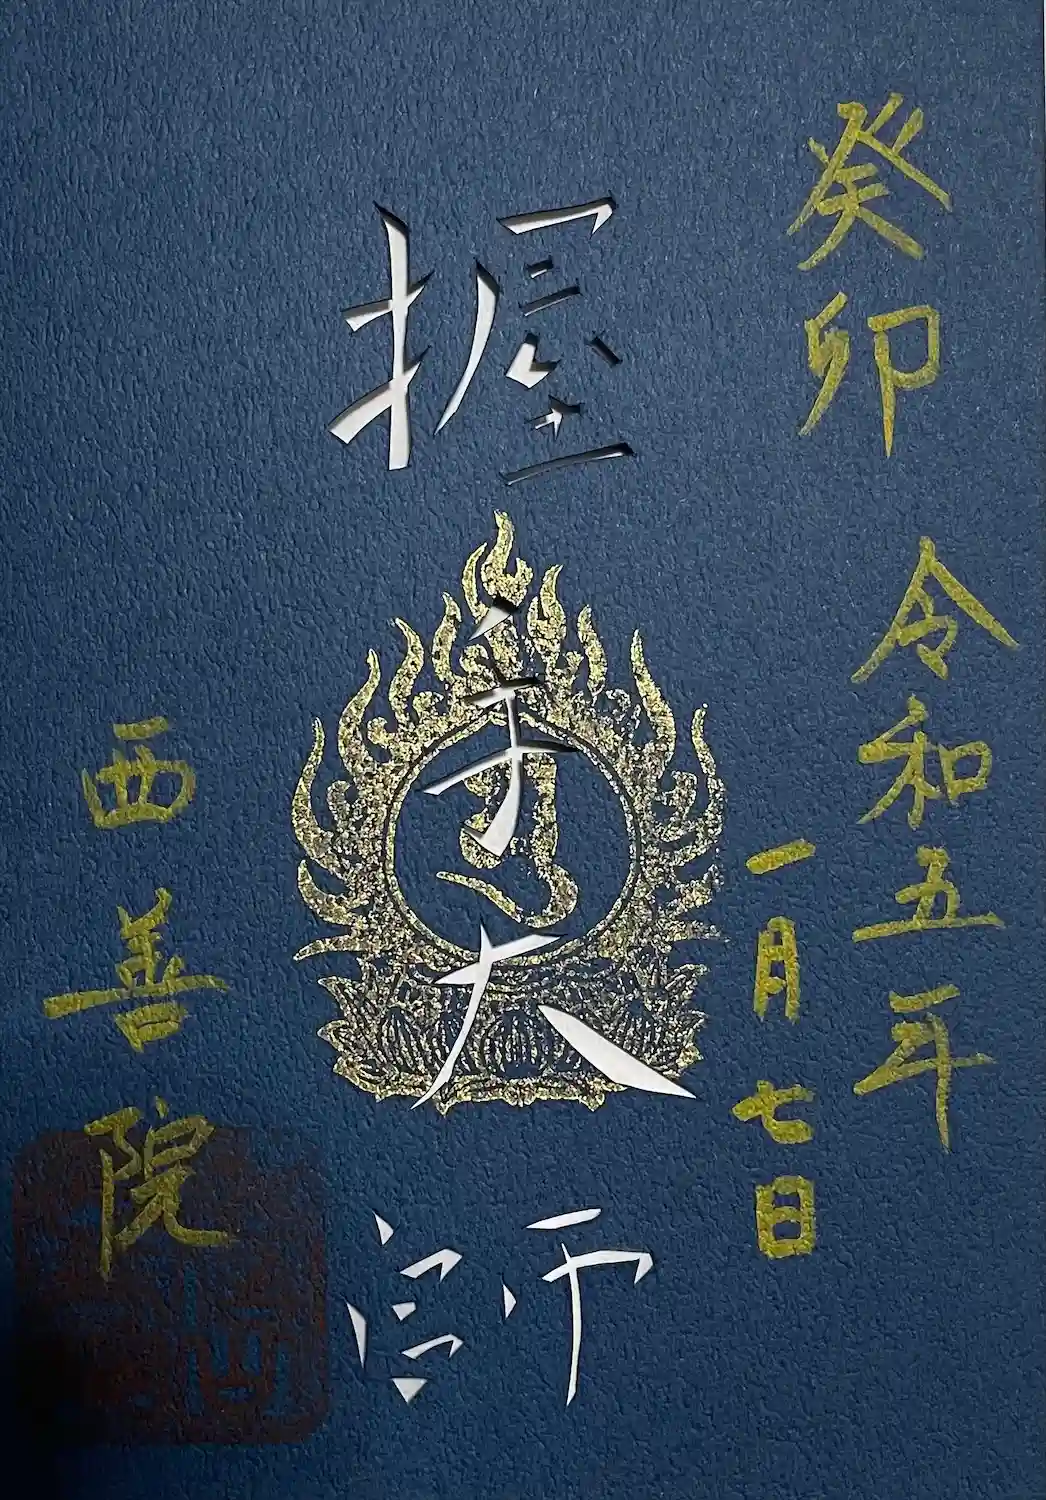 癸卯
令和五年
一月七日
握手大師
西善院